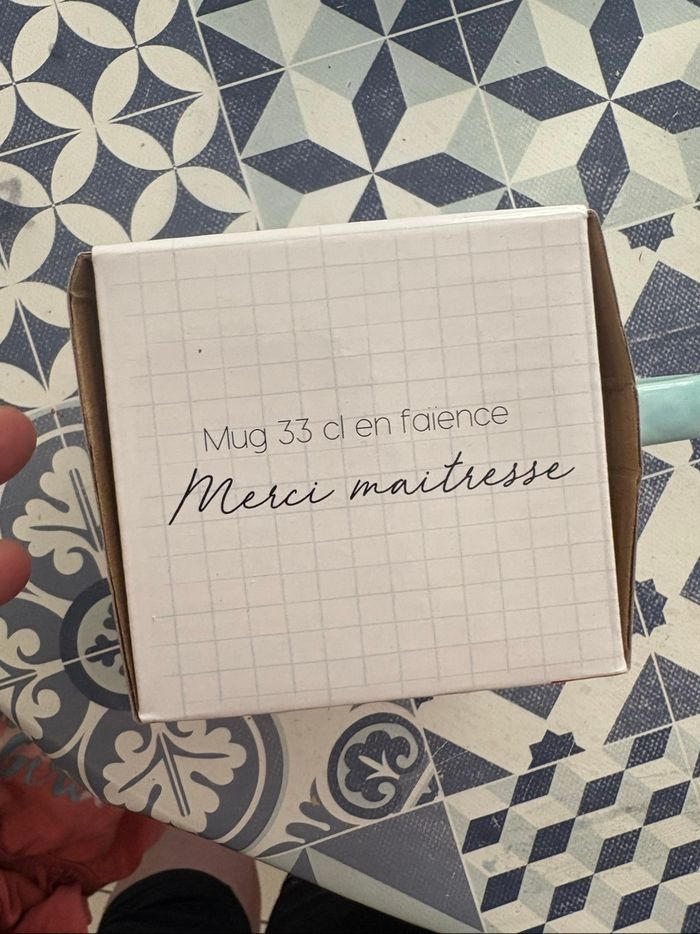 Mug 33 cl en faïence
Merci maitresse